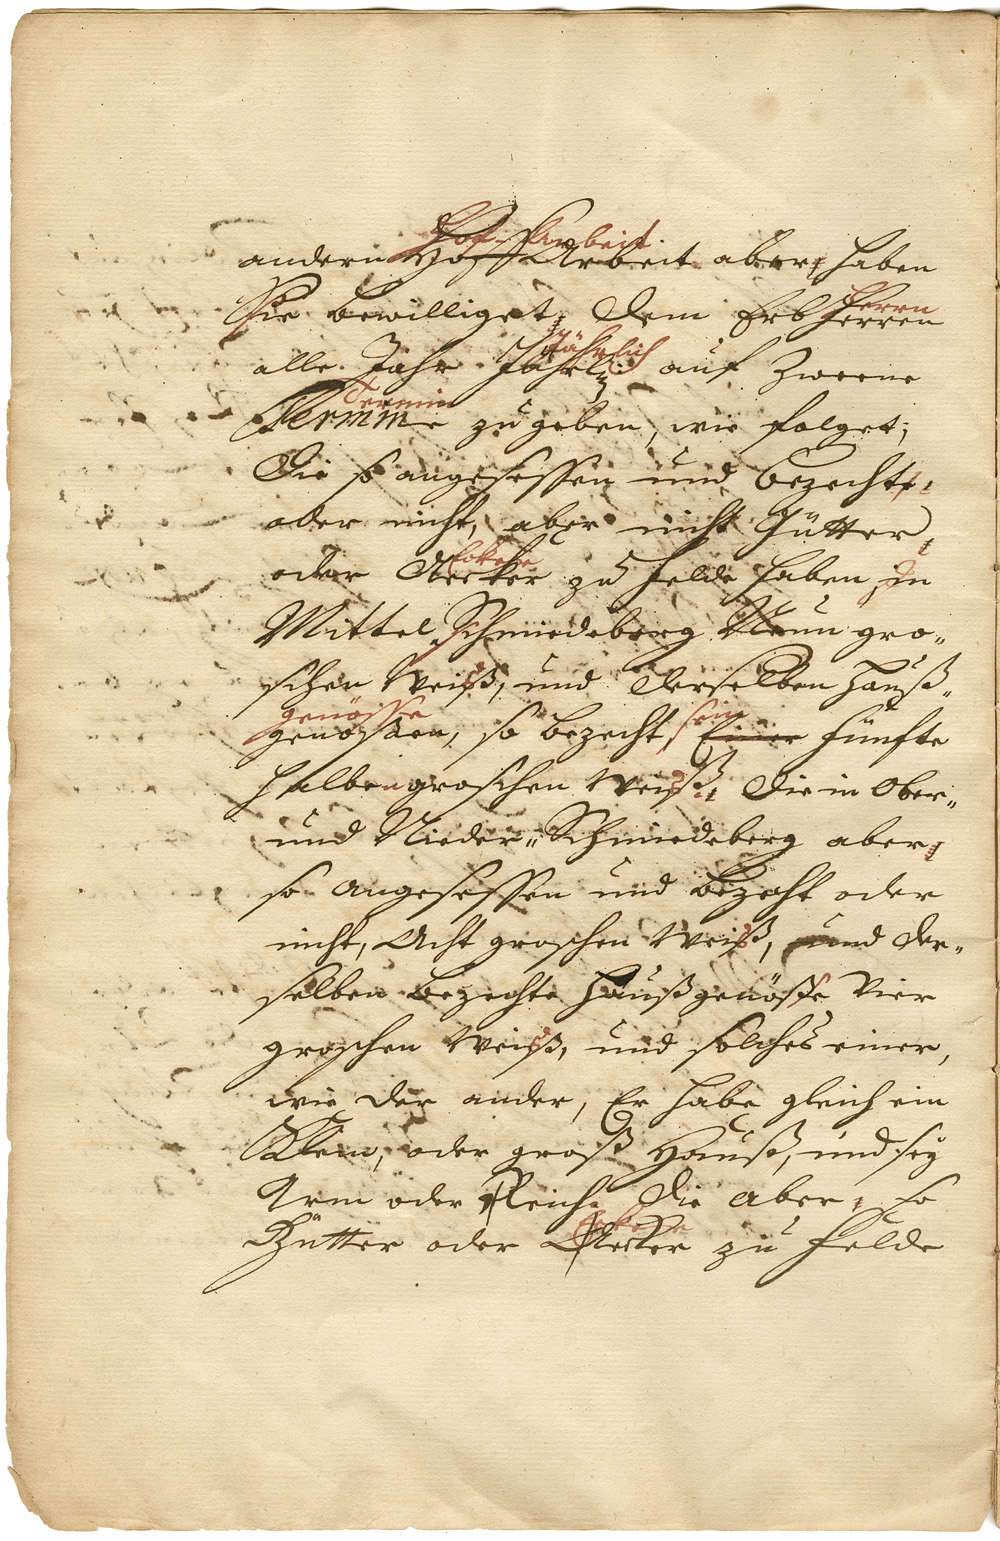 Hof Arbeit
andern Hoff Arbeit aber, haben
Herrn
Sie bewilliget, dem Erb Herren
Jährlich
alle Jahr Jährl: auf Zweene
Termin
Termine zu geben, wie folget,
Die so angesessen und bezecht,
oder nicht, aber nicht Gütter,
Eckere
oder Aecker zu Felde haben, in
Mittel Schmiedeberg Neun gro„
schen Weiß, und derselben Hauß„
genösse sein
genossen, so bezecht, Einer fünfte
halben groschen Weiß. Die in Ober„
und Nieder„ Schmiedeberg aber,
so angesessen und bezecht oder
nicht, Acht groschen Weiß, und der„
selben bezechte Haußgenösse Vier
groschen Weiß, und solches einer,
wie der ander, Er habe gleich ein
Klein, oder groß Hauß, und sey
Arm oder Reich. Die aber, so
Eckere
Gütter oder Aecker zu Felde